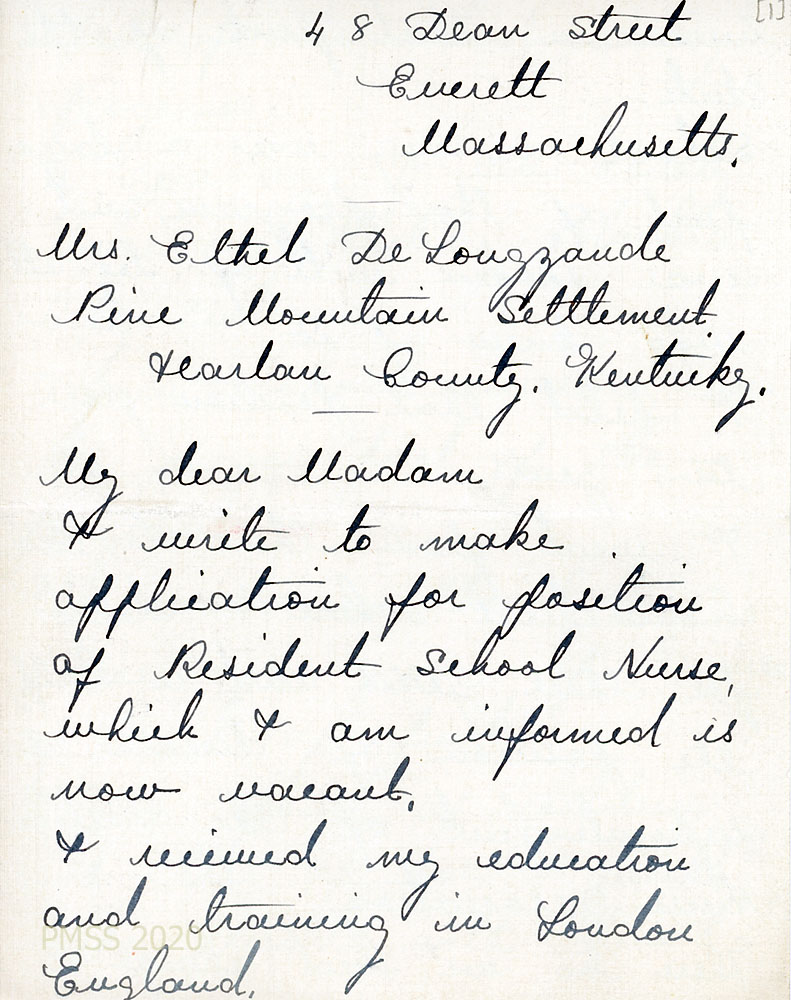 [1]
48 Dean Street
Everett
Massachusetts.
Mrs. Ethel De Longzande
Pine Mountain Settlement
Harlan County. Kentucky.
My dear Madam
I write to make
application for position
of Resident School Nurse,
which I am informed is
now vacant.
I received my education
and training in London
PMSS 2020
England.